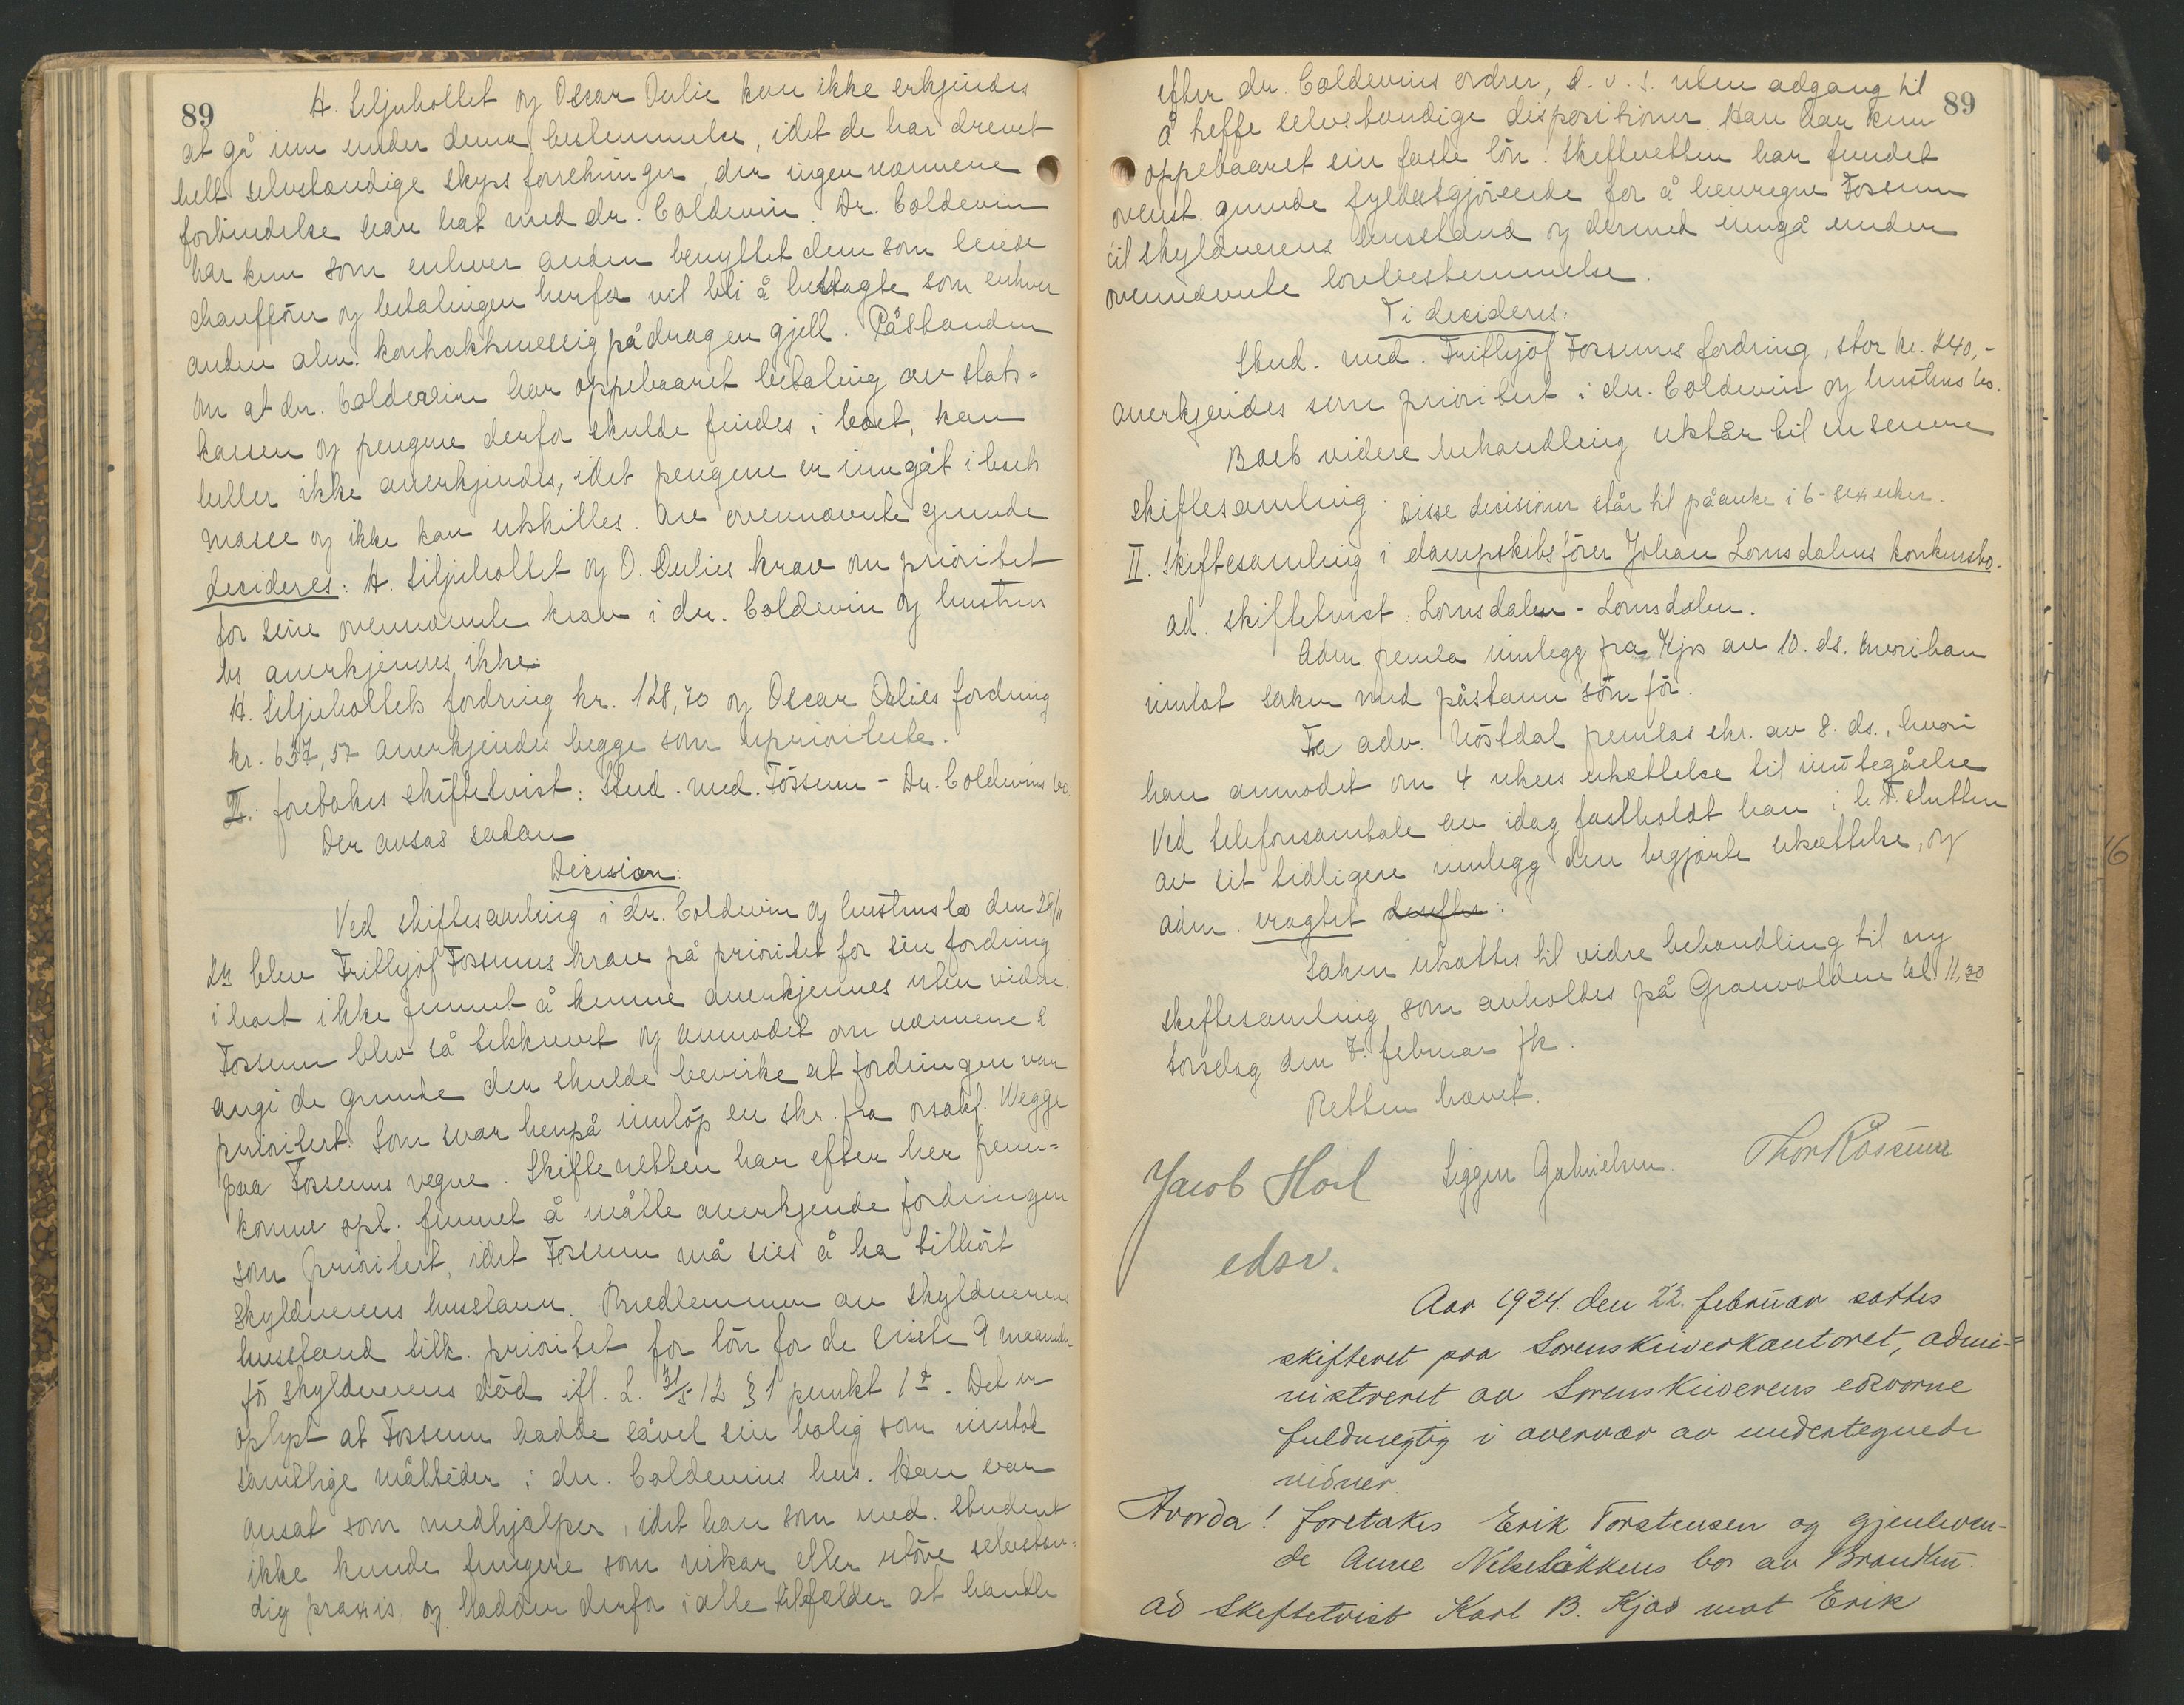 89
H. Siljuholtet og Oscar Oulie kan ikke erkjendes
at gå inn under denne bestemmelse, idet de har drevet
helt selvstændige skyss forretninger, der ingen nærmere
forbindelse har hat med dr. Coldevin. Dr. Coldevin
har kun som enhver anden benyttet dem som leiede
chauffører og betalingen herfor vil bli å betragte som enhver
anden alm. kontraktmessig pådragen gjell. Påstanden
om at dr. Coldevin har oppebaaret betaling av stats-
kassen og pengene derfor skulde findes i boet, kan
heller ikke anerkjendes, idet pengene er inngåt i boets
masse og ikke kan utskilles. Av ovennævnte grunde
decideres: H. Siljuholtet og O. Oulies krav om prioritet
for sine ovennævnte krav i dr. Coldevin og hustrus
bo anerkjennes ikke.
H. Siljuholtets fordring kr. 128,70 og Oscar Oulies fordring
kr. 637,57 anerkjendes begge som uprioriterte.
III. foretokes skiftetvist: Stud. med. Fossum - Dr. Coldevins bo.
Der avsas sådan
Decision:
Ved skiftesamling i dr. Coldevin og hustrus bo den 29/11
23 blev Frithjof Fossums krav på prioritet for sin fordring
i boet ikke funnet å kunne anerkjennes uten videre.
Fossum blev så tilskrevet og anmodet om nærmere å
angi de grunde der skulde bevirke at fordringen var
prioritert. Som svar herpå innløp en skr. fra orsakf. Wegge
paa Fossums vegne. Skifteretten har efter her frem-
komne opl. funnet å måtte anerkjende fordringen
som prioritert, idet Fossum må sies å ha tilhørt
skyldnerens husstann. Medlemmer av skyldnerens
husstand tilk. prioritet for lön for de siste 9 maaneder
för skyldnerens död ifl. L. 31/5-12 § 1 punkt 1ˢᵗ. Det er
oplyst at Fossum hadde såvel sin bolig som inntok
samtlige måltider i dr. Coldevins hus. Han var
ansat som medhjælper, idet han som med. student
ikke kunde fungere som vikar eller utöve selvstæn-
dig praxis, og hadde derfor i alle tilfælder at handle
89
efter dr. Coldevins ordrer, d. v. s. uten adgang til
å treffe selvstændige dispositioner. Han har kun
oppebaaret sin faste lön. Skifteretten har fundet
ovenst. grunde fyldestgjörende for å henregne Fossum
til skyldnerens husstand og dermed inngå under
ovennævnte lovbestemmelse.
Ti decideres:
Stud. med. Frithjof Fossums fordring, stor kr. 240,-
anerkjendes som prioritert i dr. Coldevin og hustrus bo.
Boets videre behandling utstår til en senere
skiftesamling. Disse decisioner står til påanke i 6-sex uker.
II. Skiftesamling i dampskibsförer Johan Lomsdalens konkursbo.
ad. skiftetvist: Lomsdalen - Lomsdalen.
Adm. fremla innlegg fra Kjos av 10. ds. hvori han
innlot saken med påstann som för.
Fra adv. Nöstdal fremlas skr. av 8. ds., hvori
han anmodet om 4 ukers utsættelse til imötegåelse
Ved telefonsamtale av idag fastholdt han i h. t. slutten
av sit tidligere innlegg den begjærte utsættelse, og
adm. eragtet derefter:
Saken utsættes til videre behandling til ny
skiftesamling som avholdes på Granvolden kl. 11,30
torsdag den 7. februar fk.
Retten hævet.
Jacob Hoel Sigger Gabrielsen. Thor Røssum
edsv.
Aar 1924. den 22. februar sattes
skifteret paa Sorenskriverkantoret, admi-
nistreret av Sorenskriverens edsvorne
fuldmegtig i overvær av undertegnede
vidner.
Hvorda! foretakes Erik Torstensen og gjenleven-
de Anne Nelseløkkens bo av Brandbu.
ad Skiftetvist Karl B. Kjos mot Erik
16